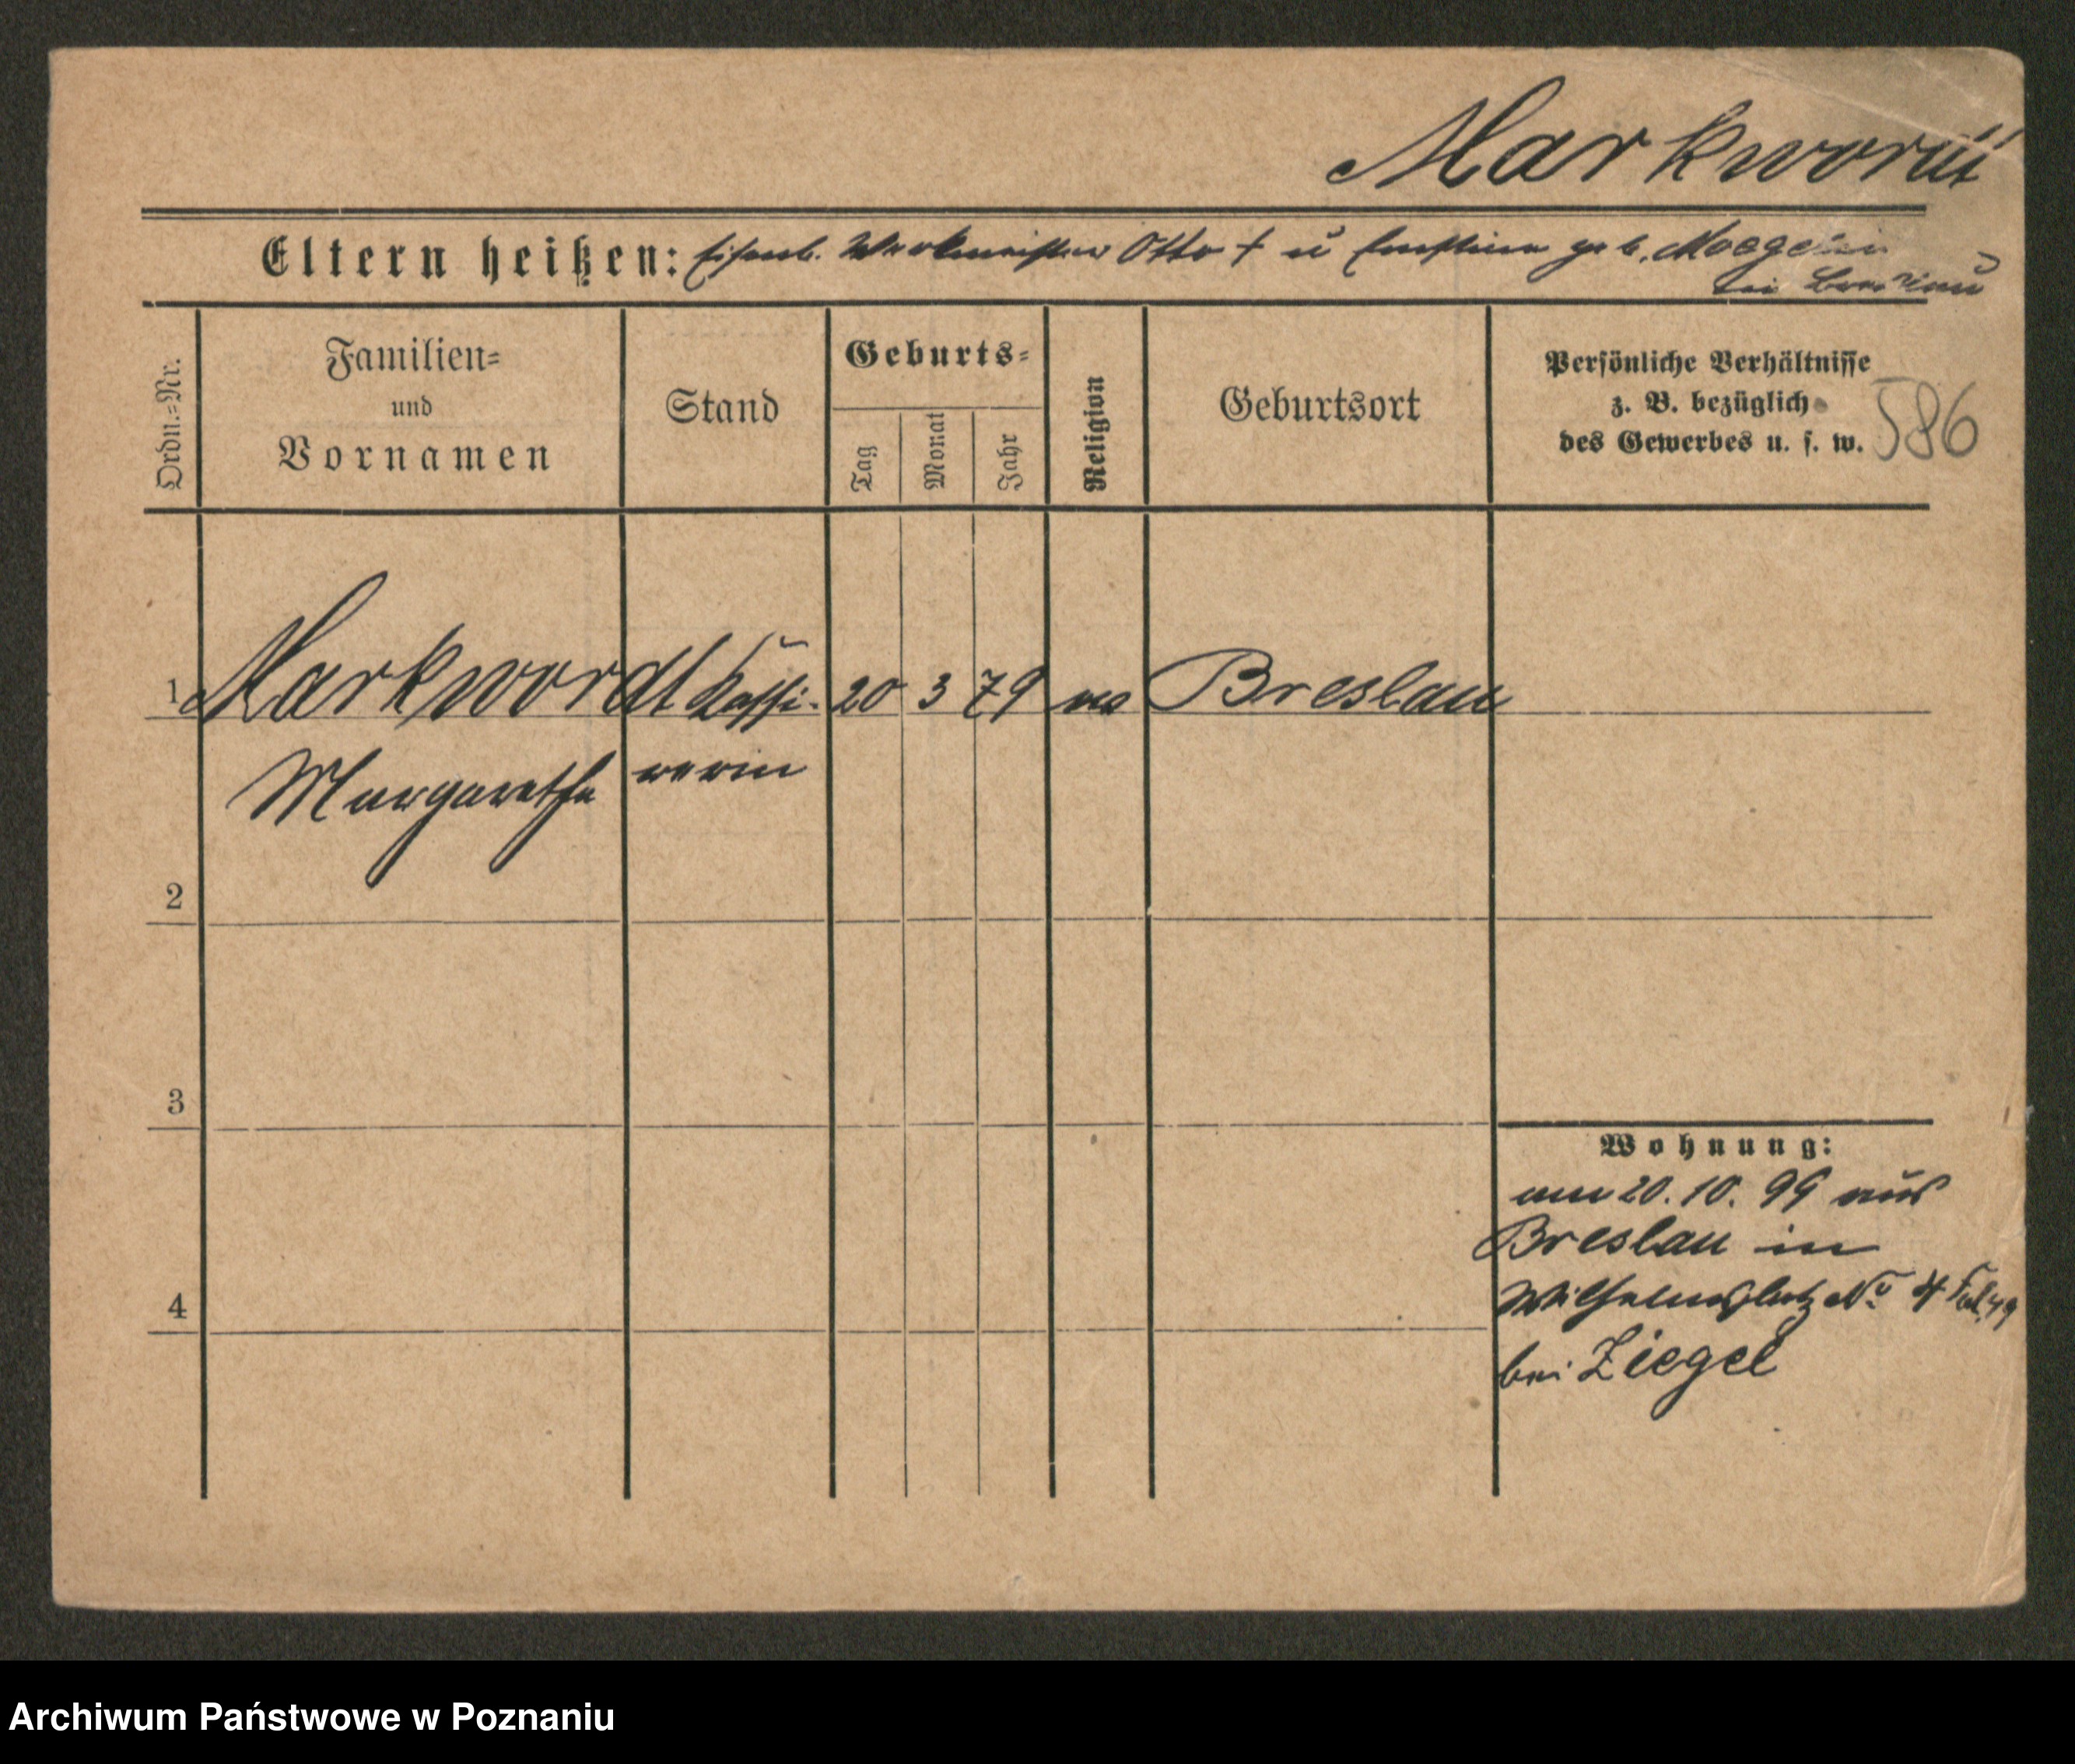 Markwordt
Eltern heißen: Eisenb. Werkmeister Otto † u Ernstine geb.
Ordn.-Nr.
Familien-
und
Vornamen
Stand
Geburts-
Tag
Monat
Jahr
Religion
Geburtsort
Persönliche Verhältnisse
z. B. bezüglich
des Gewerbes u. s. w.
586
1 Markwordt Kassi- 20 3 79 Breslau
Margarethe rerin
2
3
4
Wohnung:
am 20. 10. 99 aus
Breslau in
Wilhelmsplatz No 4
bei Ziegel
Archiwum Państwowe w Poznaniu